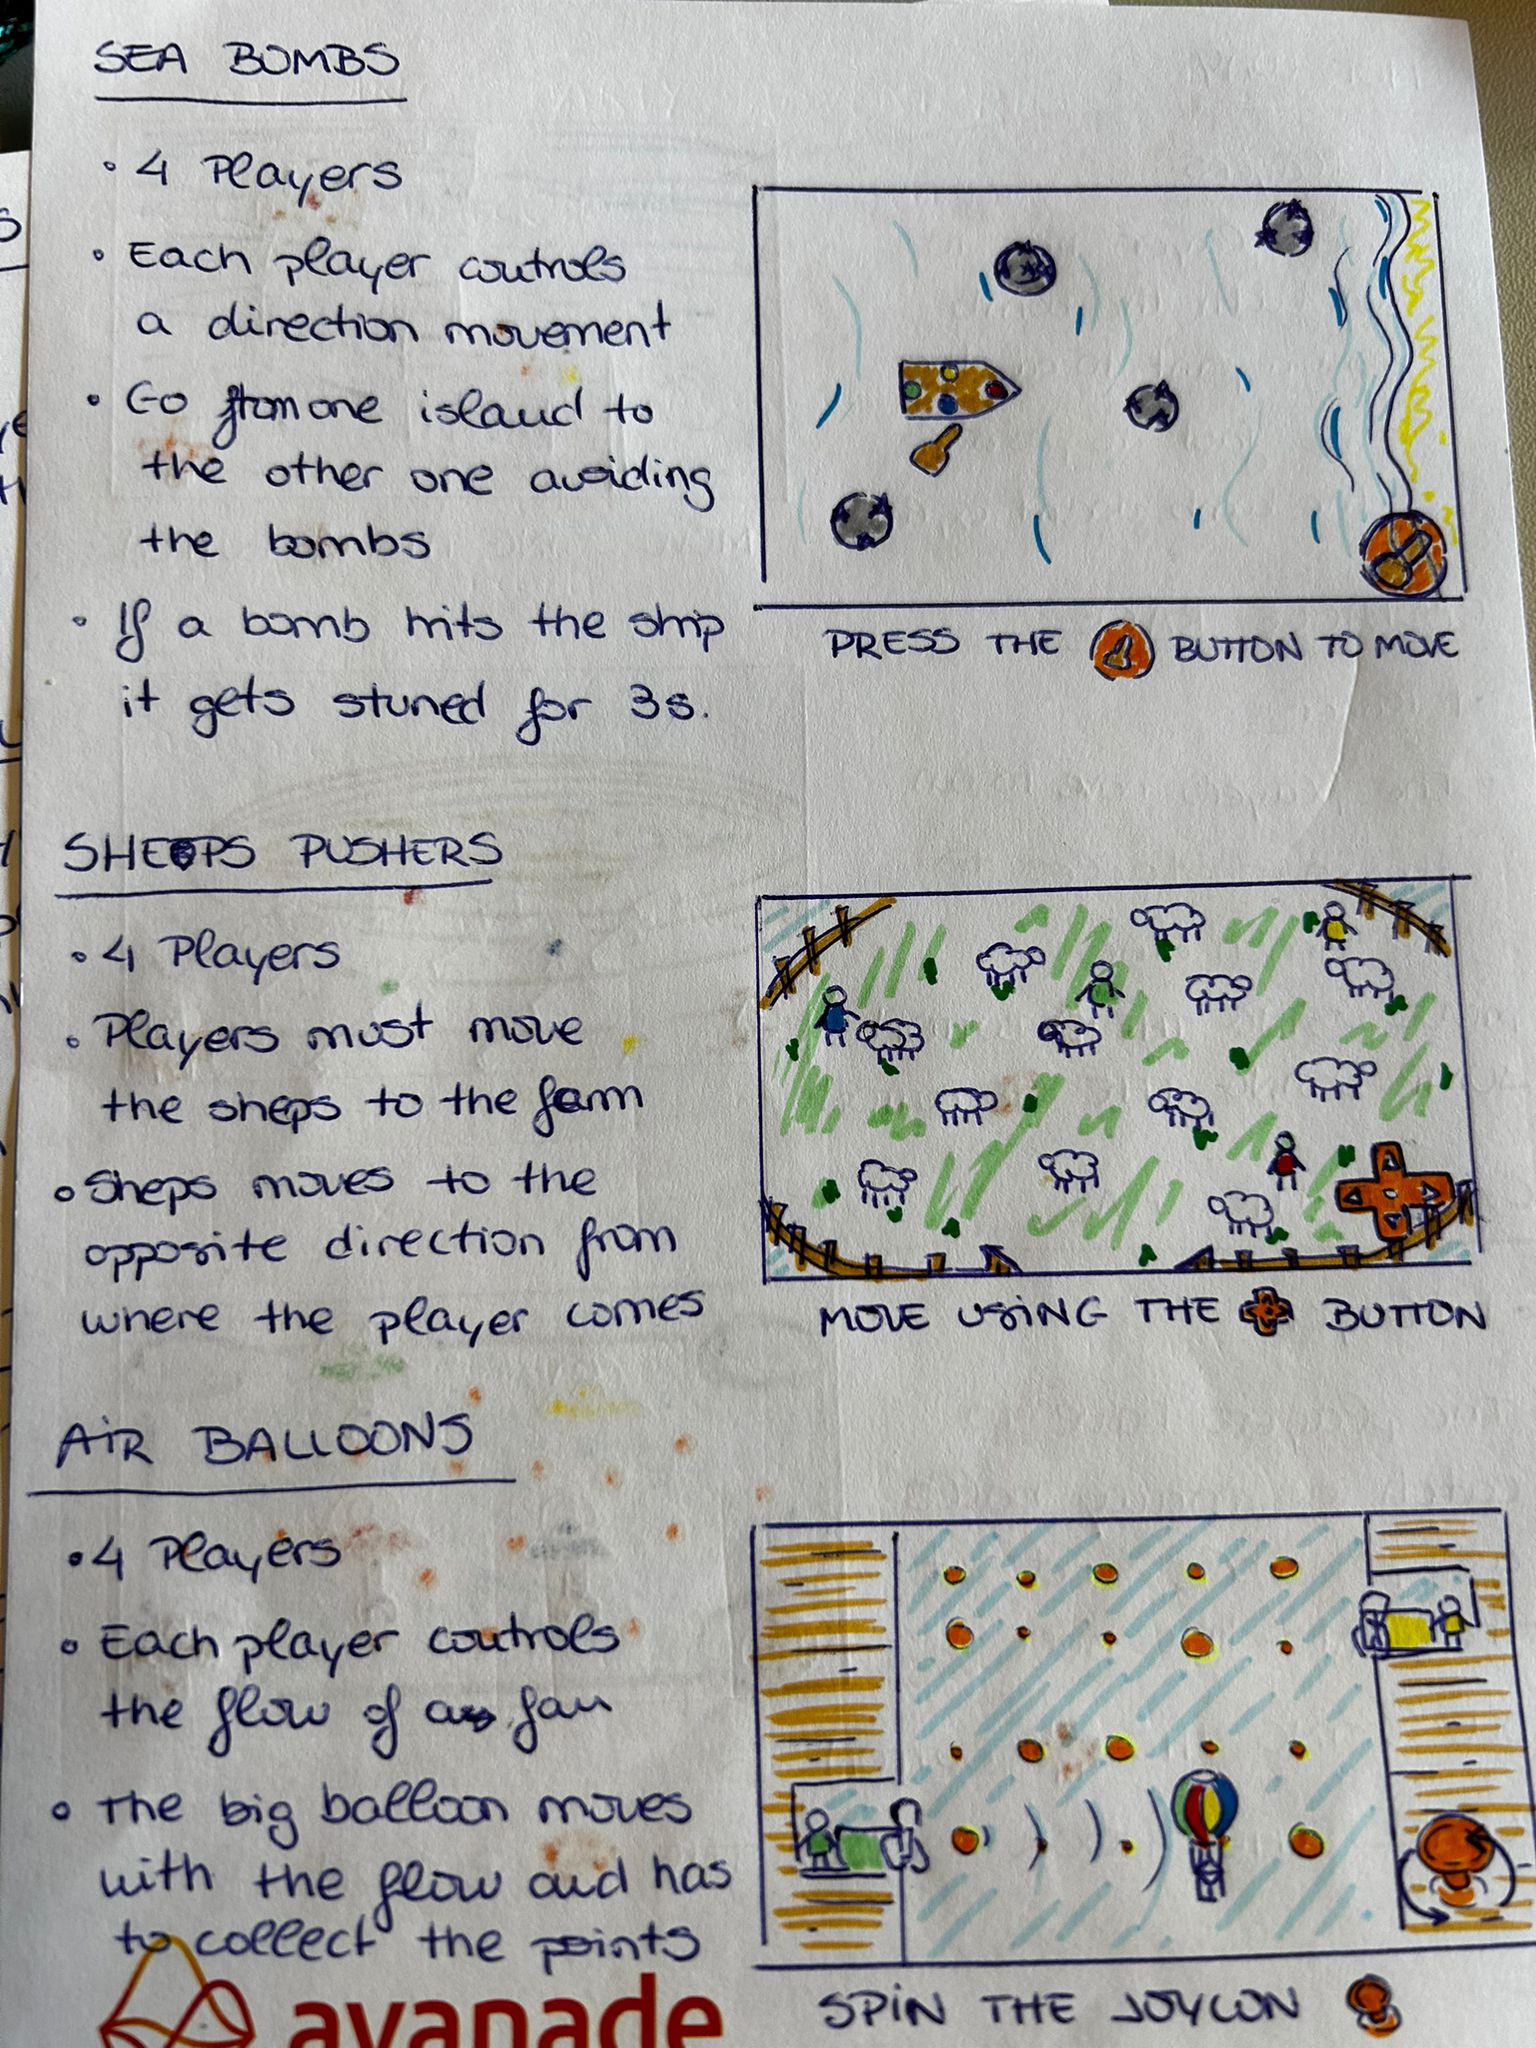 SEA BOMBS
• 4 Players
• Each player controls
a direction movement
• Go from one island to
the other one avoiding
the bombs
• If a bomb hits the ship
it gets stuned for 3s.
PRESS THE BUTTON TO MOVE
SHEEPS PUSHERS
• 4 Players
• Players must move
the sheps to the farm
• Sheps moves to the
opposite direction from
where the player comes
MOVE USING THE BUTTON
AIR BALLOONS
• 4 Players
• Each player controls
the flow of a fan
• The big balloon moves
with the flow and has
to collect the points
SPIN THE JOYCON
avanade